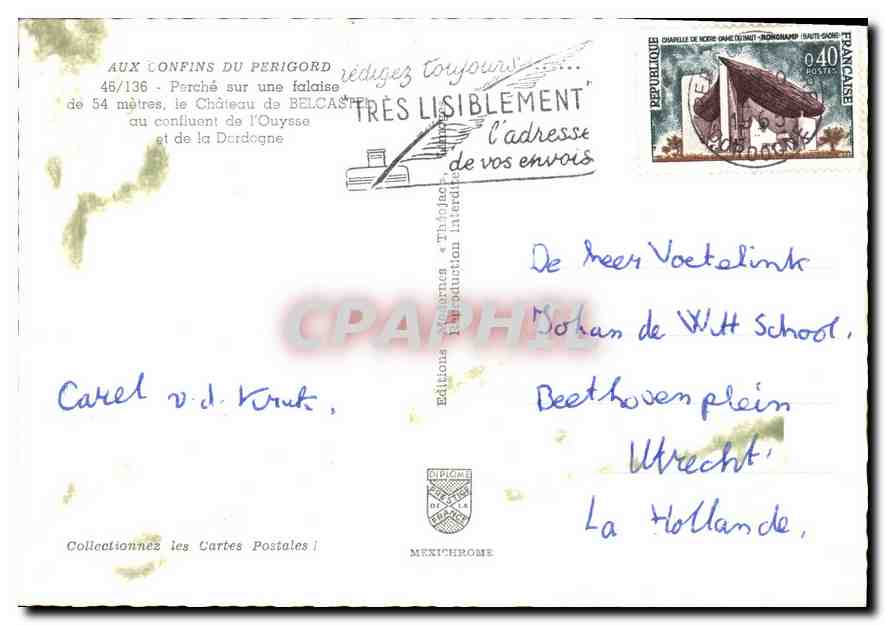 AUX CONFINS DU PERIGORD
46/136 - Perché sur une falaise
de 54 mètres, le Château de BELCASTEL
au confluent de l'Ouysse
et de la Dordogne
rédigez toujours....
"TRÈS LISIBLEMENT"
l'adresse
de vos envois
CHAPELLE DE NOTRE-DAME DU HAUT - RONCHAMP (HAUTE-SAONE)
REPUBLIQUE FRANÇAISE
0,40
POSTES
1965
DORDOGNE
Editions Modernes « Théojac », Limoges
Reproduction interdite
CPAPHIL
De heer Voetelink
Johan de Witt School.
Beethovenplein
Utrecht.
La Hollande.
Carel v.d. Kruk.
DIPLOME
PRESTIGE
DE LA
FRANCE
MEXICHROME
Collectionnez les Cartes Postales !